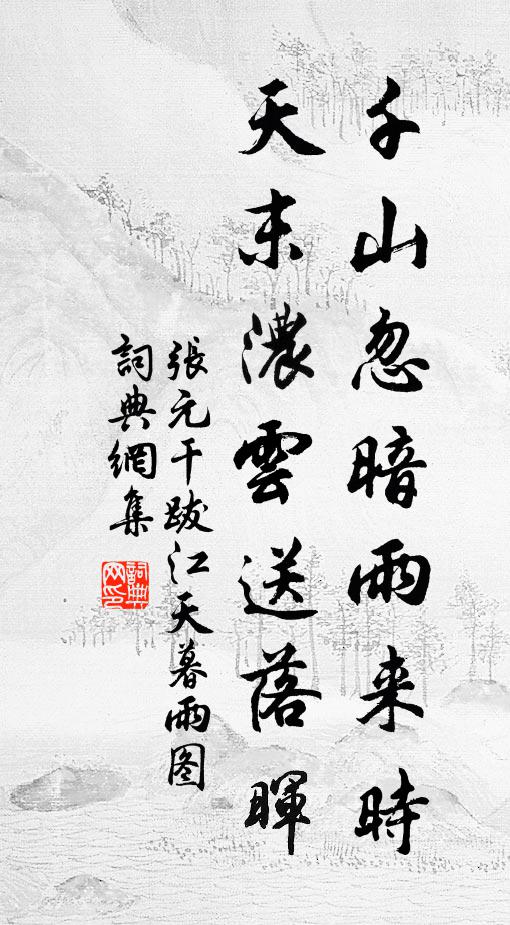 千山忽暗雨来時
天末濃雲送落暉
張元干跋江天暮雨图
詞典網集
詞典網印